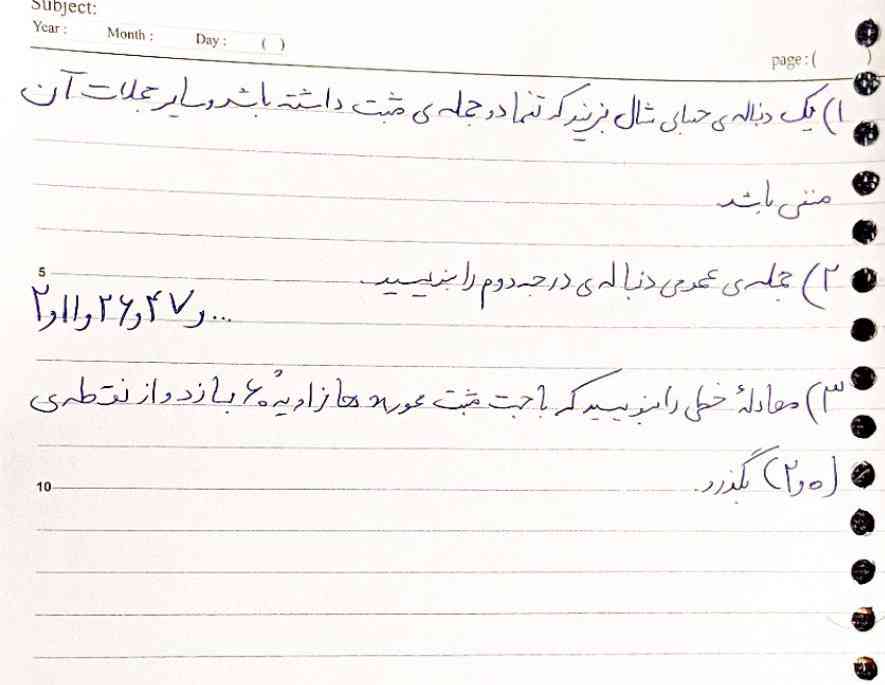 Subject:
Year : Month : Day : ( )
page : ( )
۱) یک دنباله ی حسابی مثال بزنید که تنها دو جمله ی مثبت داشته باشد و سایر جملات آن
منفی باشد
5
۲) جمله ی عمومی دنباله ی درجه دوم را بنویسید.
۲و۱۱و۲۶و۴۷و...
۳) معادلهٔ خطی را بنویسید که با جهت مثبت محور x ها زاویه ۶۰° بسازد و از نقطه ی
(۰و۲) بگذرد.
10